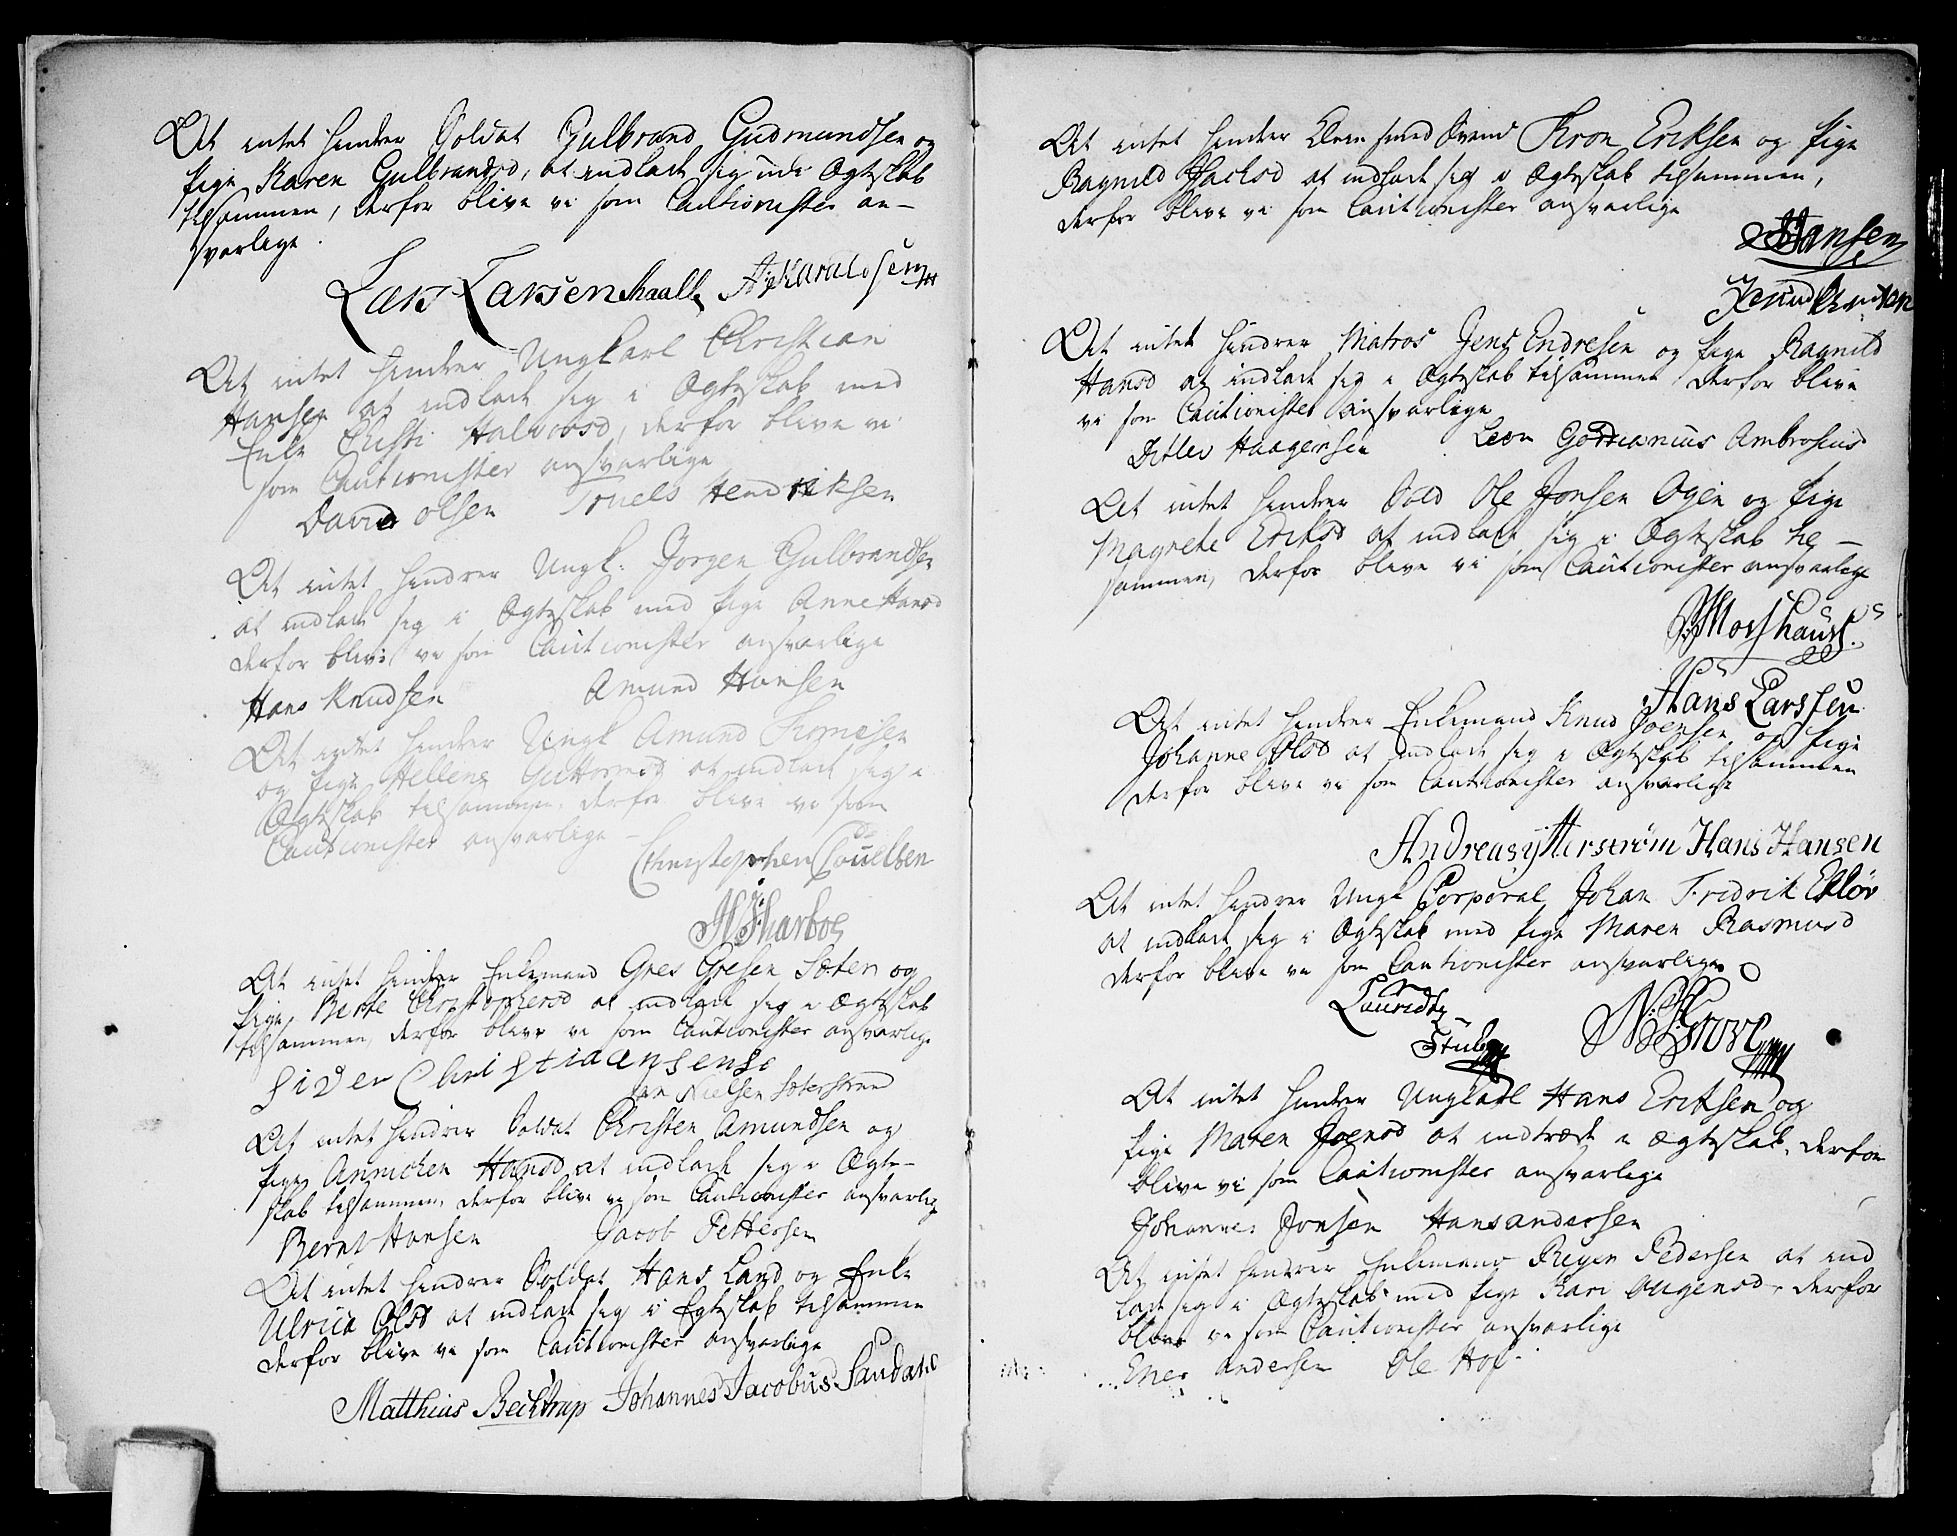 At intet hindrer Soldat Gulbrand Gudmundsen og
Pige Karen Gulbrandsd, at indlade sig udi Ægteskab
tilsammen, derfor blive vi som Cautionister an-
svarlige.
Lars Larsen Skaalle
At intet hindrer Ungkarl Christian
Hansen at indlade sig i Ægteskab med
Enke Christi Halvorsd, derfor blive vi
som Cautionister ansvarlige
David Olsen Truels Hendriksen
At intet hindrer Ungk. Jørgen Gulbrandsen
at indlade sig i Ægteskab med Pige Anne Hansd
derfor blive vi som Cautionister ansvarlige
Hans Knudsen Amund Hansen
At intet hindrer Ungk Amund
og Pige Hellene Guttormsd at indlade sig i
Ægteskab tilsammen, derfor blive vi som
Cautionister ansvarlige
Christopher
At intet hindrer Enkemand Gres Gresen Sæter og
Pige Berte Christophersd at indlade sig i Ægteskab
tilsammen, derfor blive vi som Cautionister ansvarlige
Siver Christiaansense
Nielsen Seterstrand
At intet hindrer Soldat Christen Amundsen og
Pige Annichen Hansd at indlade sig i Ægte-
skab tilsammen, derfor blive vi som Cautionister ansvarlig
Bernt Hansen Jacob Pettersen
At intet hindrer Soldat Hans Land og Enke
Ulrica Olsd at indlade sig i Egteskab tilsammen
derfor blive vi som Cautionister ansvarlige
Matthias Bechstrup Johannes Jacobus
At intet hindrer Svend Kron Eriksen og Pige
Ragnild at indlade sig i Ægteskab tilsammen,
derfor blive vi som Cautionister ansvarlige
Hansen
Knud
At intet hindrer Matros Jens Endresen og Pige Ragnild
Hansd at indlade sig i Ægteskab tilsammen derfor blive
vi som Cautionister ansvarlige
Ditlev Haagensen Leon Gordianus Ambrosius
At intet hindrer Sold Ole Jonsen og Pige
Magnete Eriksd at indlade sig i Ægteskab til-
sammen, derfor blive vi som Cautionister ansvarlige
Morshaus
Hans Larssen
At intet hindrer Enkemand Knud Joensen og Pige
Johanne Olsd at indlade sig i Ægteskab tilsammen
derfor blive vi som Cautionister ansvarlige
Andreas ytterstrøm Hans Hansen
At intet hindrer Ungk Corporal Johan Fredrik Ekløv
at indlade sig i Ægteskab med Pige Maren Rasmusd
derfor blive vi som Cautionister ansvarlige
Lauridts N: Grove
Stub
At intet hindrer Ungkarl Hans Eriksen og
Pige Maren Joensd at indtræde i Ægteskab, derfor
blive vi som Cautionister ansvarlige
Johannes Jonsen Hans andersen
At intet hindrer Enkemand Reyer Pedersen at ind
lade sig i Ægteskab med Pige Kari derfor
blive vi som Cautionister ansvarlige
Ener andersen Ole Hof